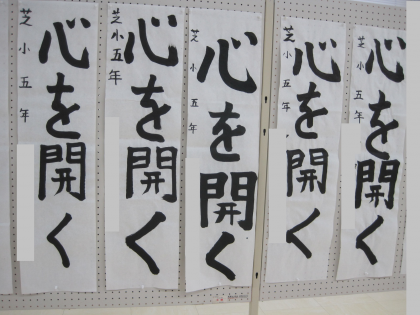 心を開く
芝小五年
心を開く
芝小五年
心を開く
芝小五年
心を開く
芝小五年
心を開く
芝小五年